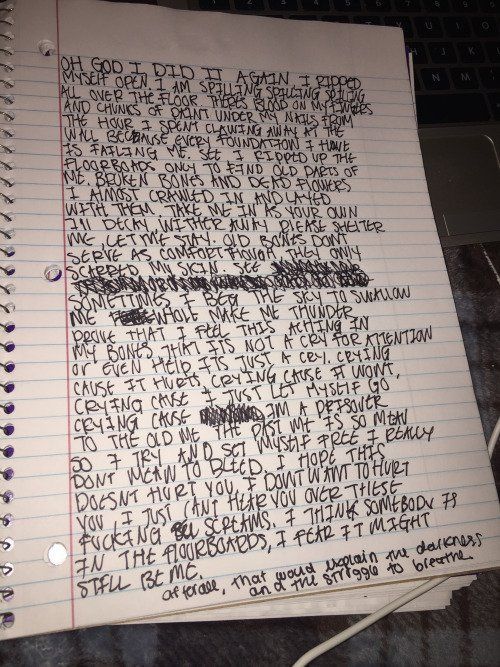 OH GOD I DID IT AGAIN I RIPPED
MYSELF OPEN I AM SPILLING SPILLING SPILLING
ALL OVER THE FLOOR THERES BLOOD ON MY FINGERS
AND CHUNKS OF PAINT UNDER MY NAILS FROM
THE HOUR I SPENT CLAWING AWAY AT THE
WALL BECAUSE EVERY FOUNDATION I HAVE
IS FAILING ME. SEE I RIPPED UP THE
FLOORBOARDS ONLY TO FIND OLD PARTS OF
ME. BROKEN BONES AND DEAD FLOWERS
I ALMOST CRAWLED IN AND LAYED
WITH THEM. TAKE ME IN AS YOUR OWN
I'll DECAY, WITHER AWAY PLEASE SHELTER
ME, LET ME STAY. OLD BONES DONT
SERVE AS COMFORT THOUGH. THEY ONLY
SCARRED MY SKIN. SEE
SOMETIMES I BEG THE SKY TO SWALLOW
ME WHOLE MAKE ME THUNDER
PROVE THAT I FEEL THIS ACHING IN
MY BONES, THAT ITS NOT A CRY FOR ATTENTION
OR EVEN HELP ITS JUST A CRY. CRYING
CAUSE IT HURTS CRYING CAUSE IT WONT,
CRYING CAUSE I JUST LET MYSELF GO
CRYING CAUSE IM A
TO THE OLD ME THE PAST ME IS SO MEAN
SO I TRY AND SET MYSELF FREE I REALLY
DONT MEAN TO BLEED. I HOPE THIS
DOESNT HURT YOU, I DONT WANT TO HURT
YOU I JUST CANT HEAR YOU OVER THESE
FUCKING SCREAMS. I THINK SOMEBODY IS
IN THE FLOORBOARDS, I FEAR IT MIGHT
STILL BE ME.
afterall, that would explain the darkness
and the struggle to breathe.